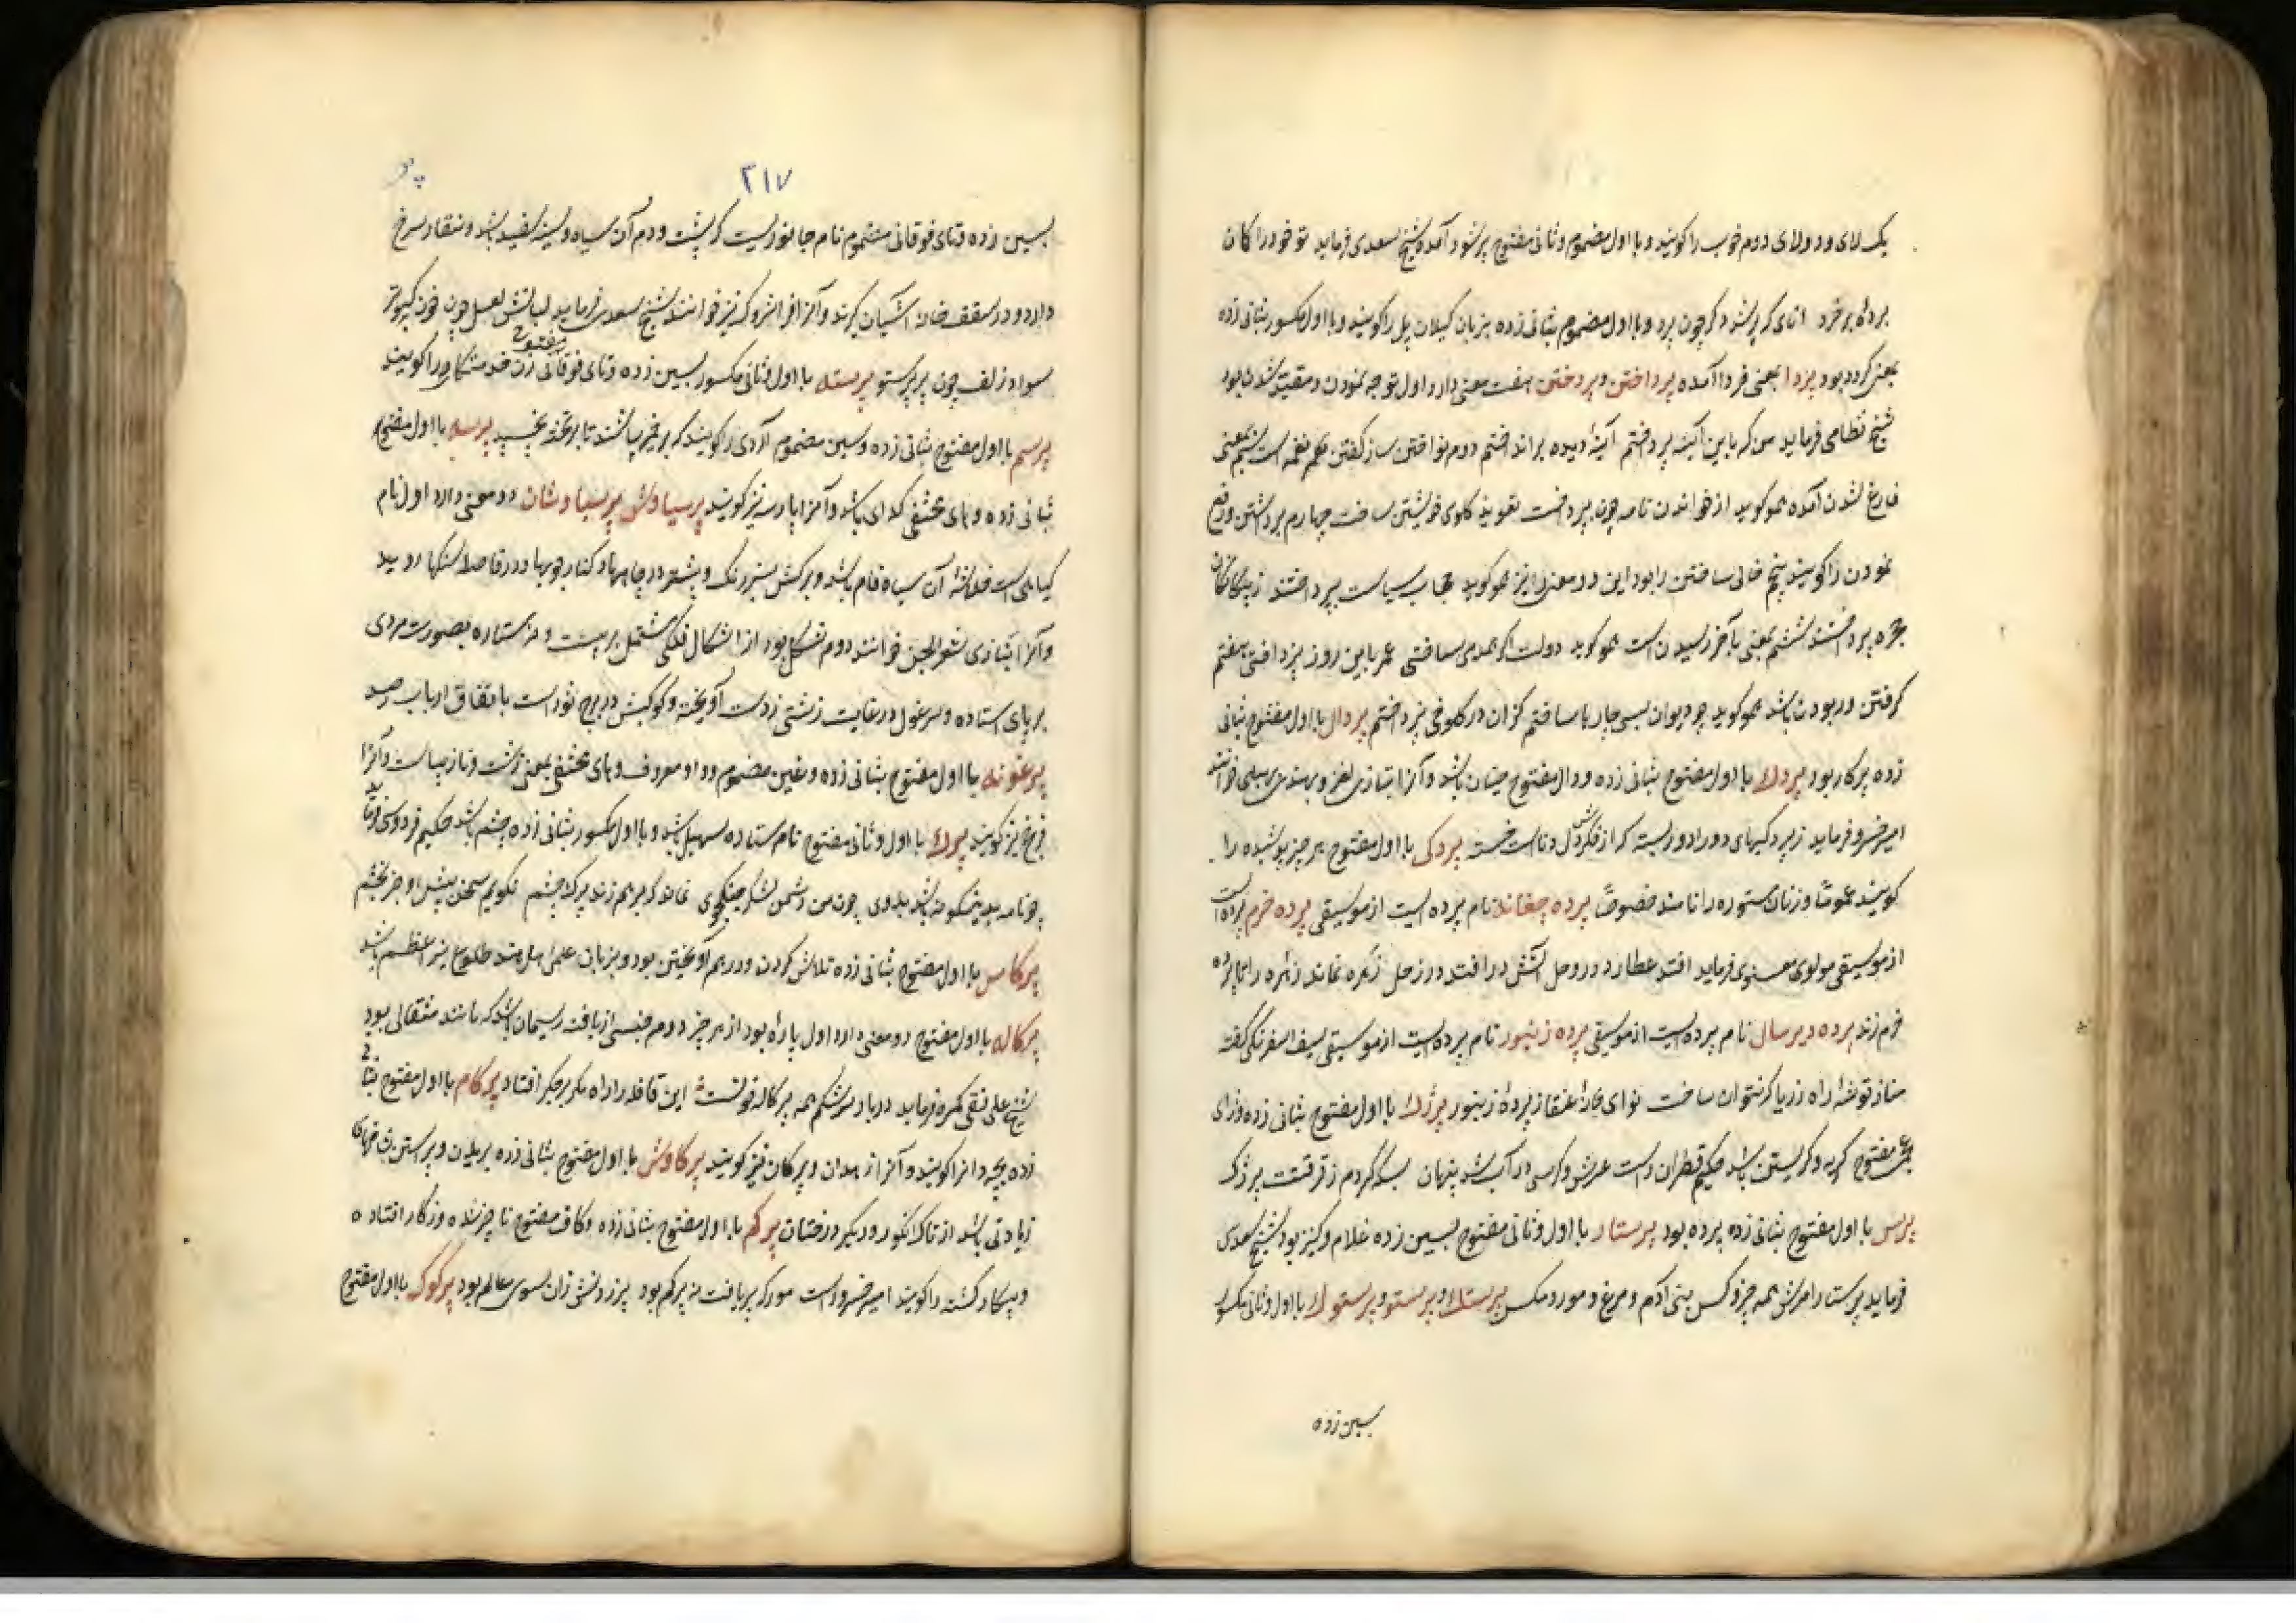 یک لای و دولای دوم خوب را کویند و با اول مضموم و ثانی مفتوح پر شود آمده شیخ سعدی فرماید تو خود را کان
بردهٔ پر خرد انای که پر شد دکر چون پرد و با اول مضموم بثانی زده بزبان کیلان پل را کویند و با اول مکسور بثانی زده
بمعنی کردد بود پردا بمعنی فردا آمده پرداختن و پردختن هفت معنی دارد اول توجه نمودن و مقید شدن بود
شیخ نظامی فرماید من که باین آینه پرداختم آینهٔ دیده برانداختم دوم نواختن ساز کفتن نغمه است سیم بمعنی
فارغ شدن آمده هم او کوید از خواندن نامه چون بپرداخت تعویذ کلوی خویشتن ساخت چهارم برداشتن و رفع
نمودن را کویند پنجم خالی ساختن را بود این دو معنی را نیز هم او کوید حجاب سیاست بپرداختند ز بیکانکان
حجره پرداختند ششم بمعنی بآخر رسیدن است هم او کوید دولت اکر همدمی ساختی عمر باین روز نپرداختی هفتم
کرفتن و ربودن باشد هم او کوید چو دیوان بسی چاره‌ها ساختم کزان در کلوخی نپرداختم پردال با اول مفتوح بثانی
زده پرکار بود پردک با اول مفتوح بثانی زده و دال مفتوح چیستان باشد و آنرا بتازی لغز و بهندی پهیلی خوانند
امیر خسرو فرماید ز پردکیهای دور ادوریست که از فکرش دل دناست خسته پردکی با اول مفتوح هر چیز پوشیده را
کویند عموماً و زنان مستوره را نامند خصوصاً پرده چغانه نام پرده ایست از موسیقی پرده خرم پرده است
از موسیقی مولوی معنوی فرماید افتد عطارد در وحل آتش در افتد در زحل زهره نماند زهره را تا پرده
خرم زند پرده دیرسال نام پرده ایست از موسیقی پرده زنبور نام پرده ایست از موسیقی سیف اسفرنکی کفته
مساز توشهٔ راه ز ریا که نتوان ساخت نوای خانهٔ عنقا ز پردهٔ زنبور پرژک با اول مفتوح بثانی زده و زای
عجمی مفتوح کریه و کریستن باشد حکیم قطران راست عرش و کرسی در آب شد پنهان بسکه کردم ز فرقتت پرژک
پرس با اول مفتوح بثانی زده پرده بود پرستار با اول و ثانی مفتوح بسین زده غلام و کنیز بود شیخ سعدی
فرماید پرستار امرش همه چیز و کس بنی آدم و مرغ و مور و مکس پرستک و پرستو و پرستوک با اول و ثانی مکسور
بسین زده
۲۱۷
بسین زده و تای فوقانی مضموم نام جانوریست که پشت و دم آن سیاه و سینه سفید باشد و منقار سرخ
دارد و در سقف خانه آشیان کیرند و آنرا فراشتروک نیز خوانند شیخ سعدی فرماید لبانش لعل چون خون کبوتر
سواد زلف چون پر پرستو پرسته با اول و ثانی مکسور بسین زده و تای فوقانی مفتوح زن خدمتکار را کویند
پرسم با اول مفتوح بثانی زده و سین مضموم آردی را کویند که بر خمیر پاشند تا بر تخته نچسپد پرسه با اول مفتوح
بثانی زده و های مختفی کدای باشد و آنرا پارسه نیز کویند پرسیاوش پرسیاوشان دو معنی دارد اول نام
کیاهی است که شاخهٔ آن سیاه فام باشد و برکش سبز رنک و بیشتر در چاهها و کنار جویها و در فاصلهٔ سنکها روید
و آنرا بتازی شعر الجن خوانند دوم شکلی بود از اشکال فلکی مشتمل بر بیست و سه ستاره بصورت مردی
بر پای استاده و سر غول در غایت زشتی ز دست آویخته و کوکبش در برج ثور است باتفاق ارباب رصد
پرغونه با اول مفتوح بثانی زده و غین مضموم و واو معروف و های مختفی بمعنی زشت و نازیباست و آنرا
فرخج نیز کویند پرک با اول و ثانی مفتوح نام ستاره سهیل باشد و با اول مکسور بثانی زده چشم باشد حکیم فردوسی فرماید
چو نامه بدینکونه باشد بدوی چو من دشمن و لشکر جنکجوی نماند که بر هم زند پرک چشم نکویم سخن پیش او جز بخشم
پرکاس با اول مفتوح بثانی زده تلاش کردن و در هم آویختن بود و بزبان علمی اهل هند طلوع نیر اعظم باشد
پرکاله با اول مفتوح دو معنی دارد اول پاره بود از هر چیز دوم جنسی از بافته ریسمان باشد که مانند مثقالی بود
شیخ علی نقی کمره فرماید در بار سرشکم همه پرکالهٔ خونست این قافله را راه مکر بر جکر افتاد پرکام با اول مفتوح بثانی
زده بچه دان را کویند و آنرا زهدان و پرکان نیز کویند پرکاوش با اول مفتوح بثانی زده بریدن و پیراستن شاخهای
زیادتی باشد از تاک انکور و دیکر درختان پرکم با اول مفتوح بثانی زده و کاف مفتوح ناچیز شده و از کار افتاده
و بیکار کشته را کویند امیر خسرو راست مور که پر یافت نه پرکم بود پر زدنش زان سوی عالم بود پرکوک با اول مفتوح